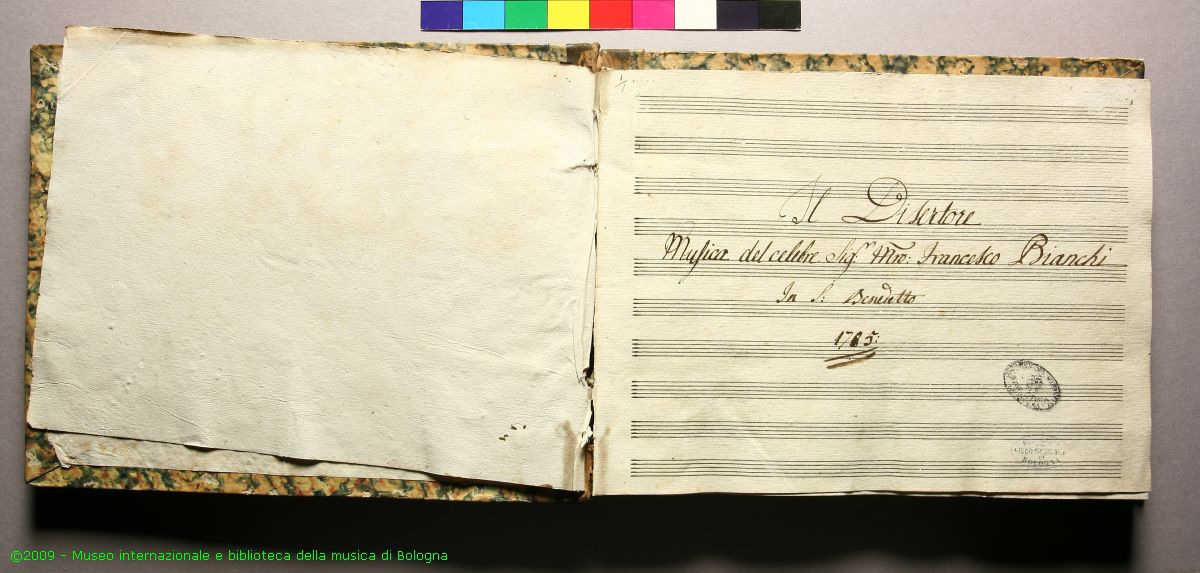 1/
Il Disertore
Musica del celebre Sig.r Mro: Francesco Bianchi
In S: Benedetto
1785:
BOLOGNA
©2009 - Museo internazionale e biblioteca della musica di Bologna